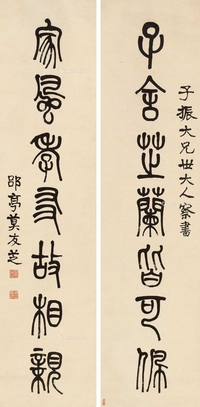 子振大兄世大人察書
子舍芷蘭皆可佩
家風孝友故相親
郘亭莫友芝